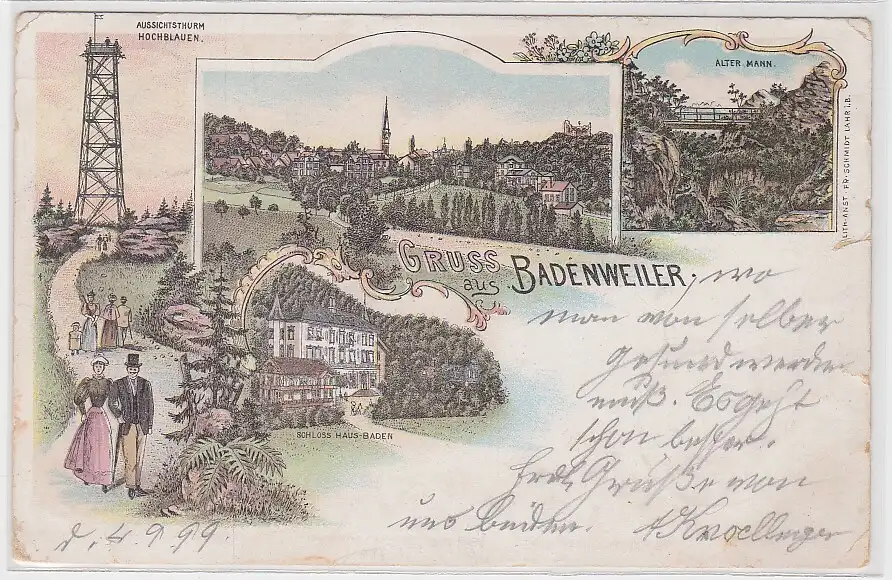 AUSSICHTSTHURM
HOCHBLAUEN.
ALTER MANN.
LITH. ANST. FR. SCHMIDT LAHR I. B.
GRUSS
aus BADENWEILER, wo
man von selber
gesund werden
muß. Es geht
schon besser.
SCHLOSS HAUS-BADEN
Grüße von
uns beiden.
d. 4.9.99.